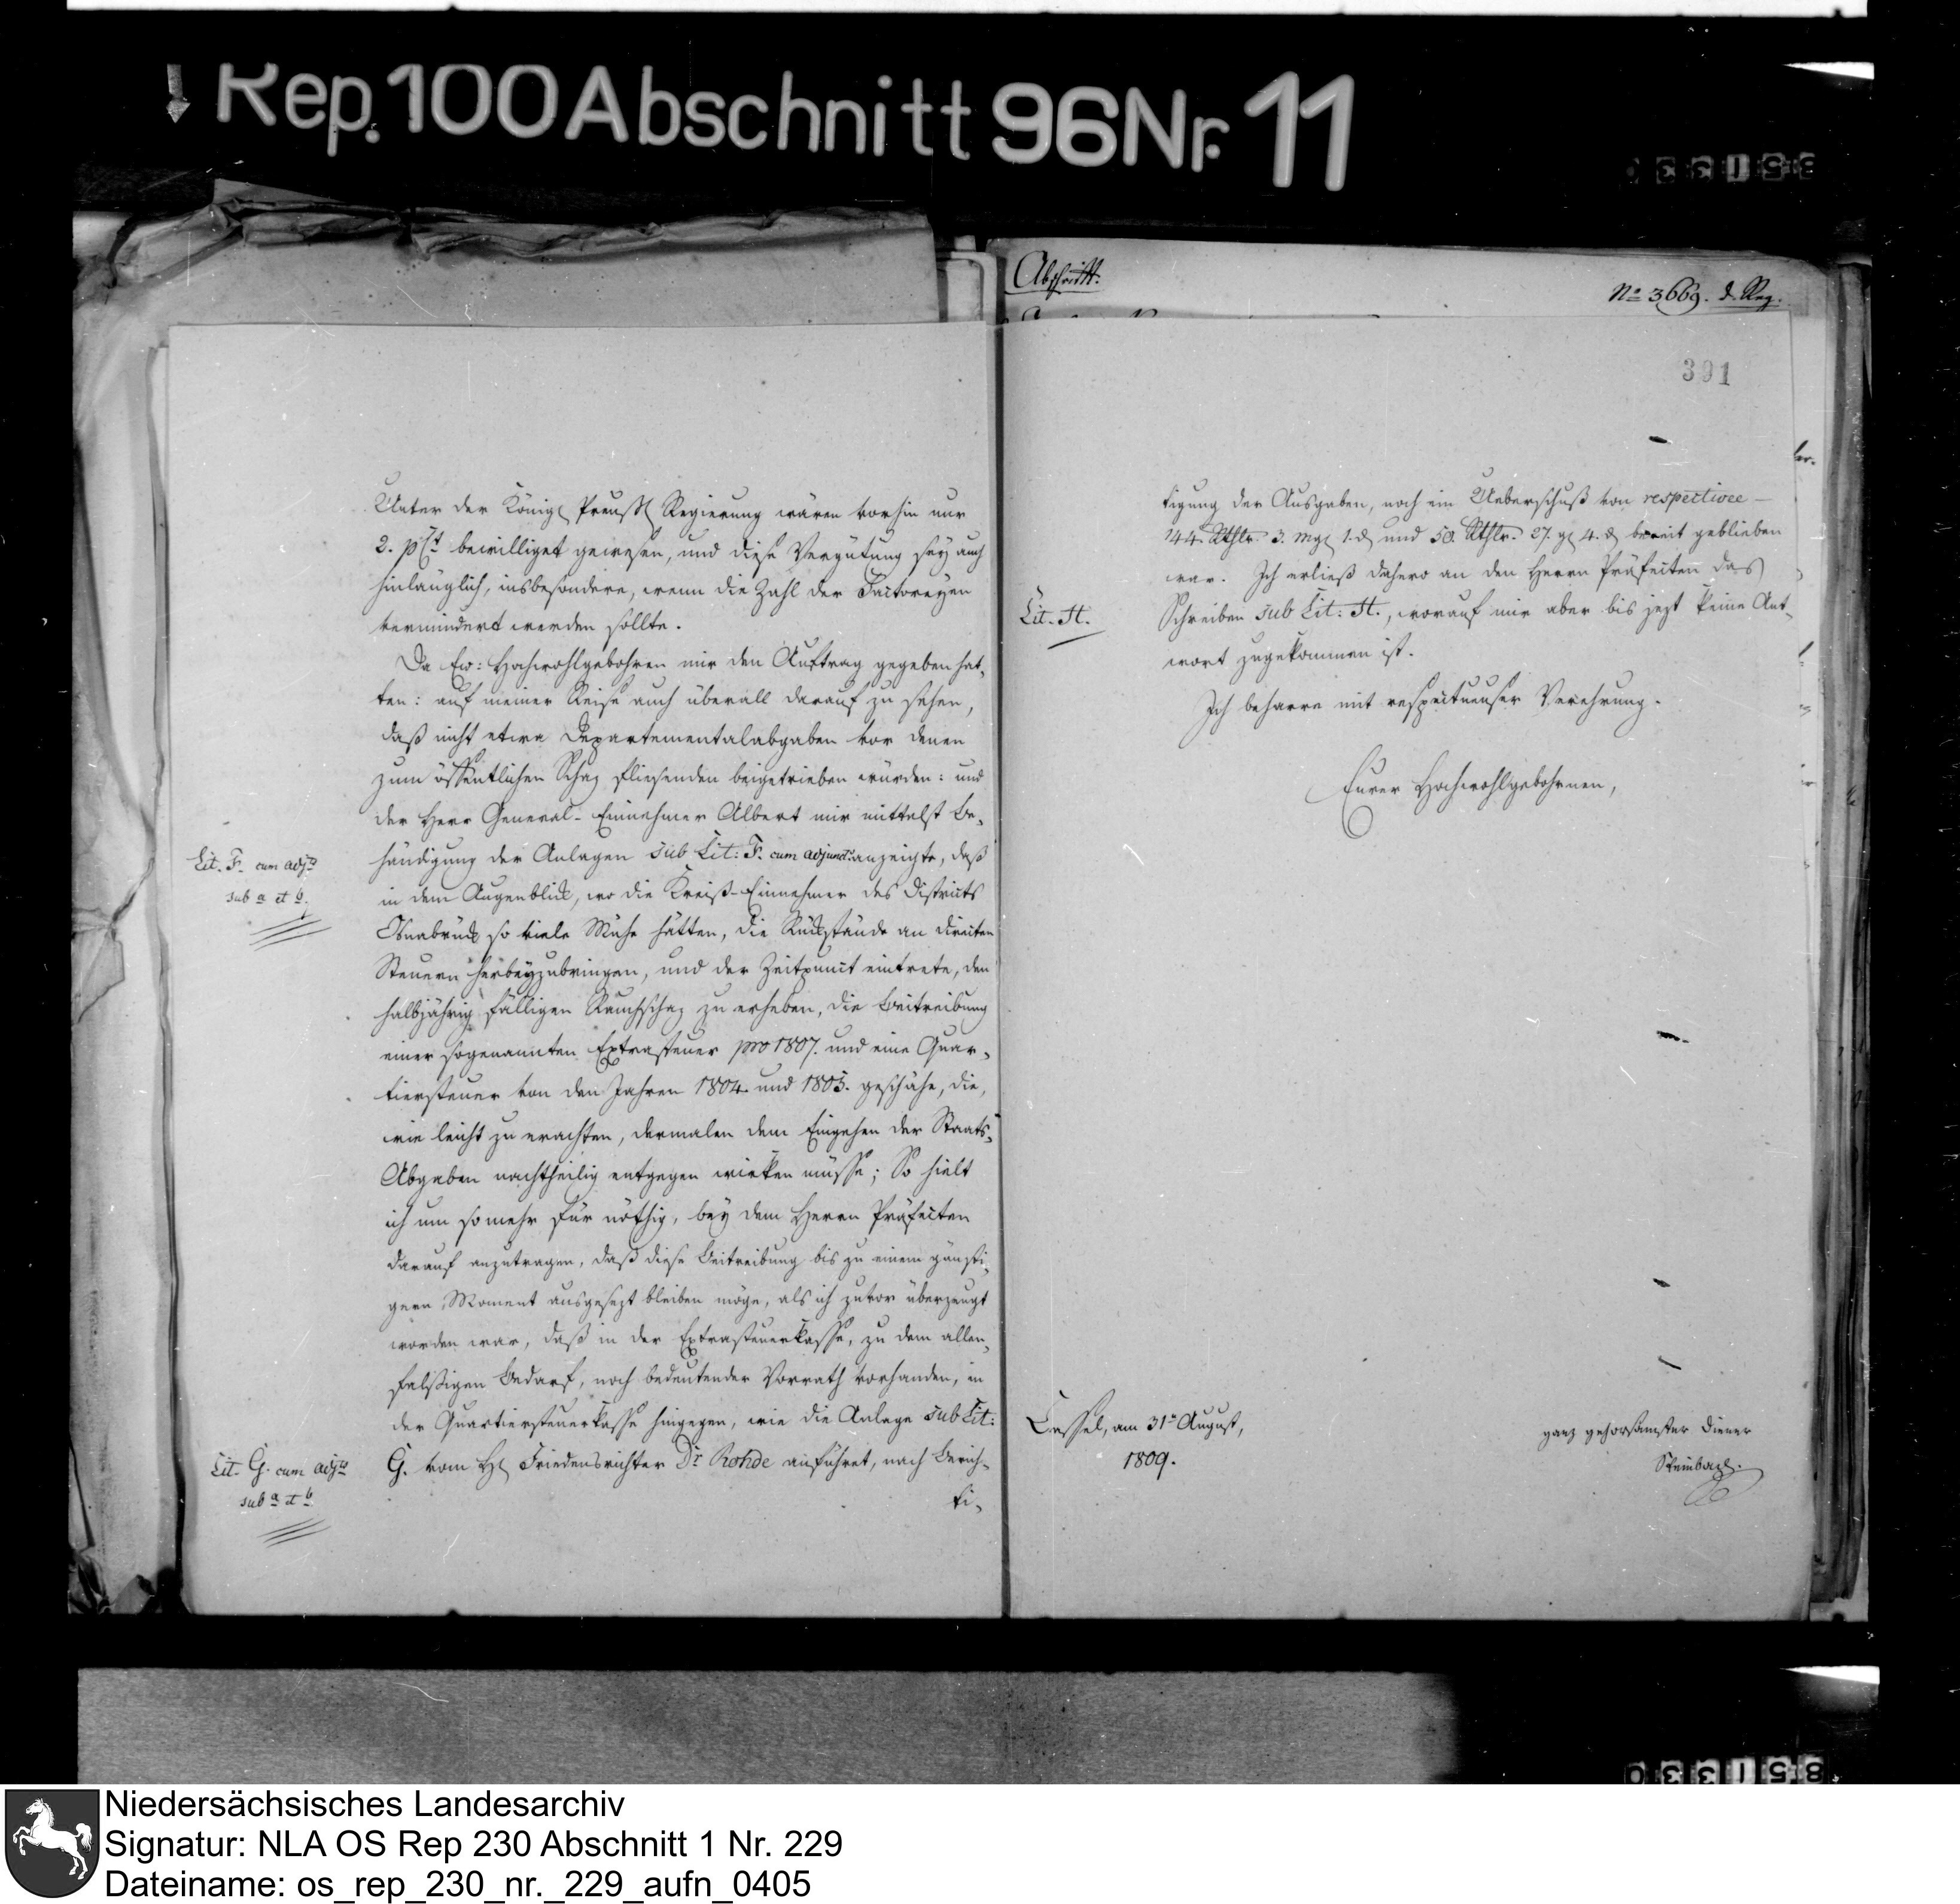 Rep. 100 Abschnitt 96 Nr. 11
Abschrift.
No 3669. d. Reg.
391
Unter der Königl Preußl Regierung wären vorhin nur
2. pCt bewilliget gewesen, und diese Vergütung sey auch
hinlänglich, insbesondere, wenn die Zahl der Factoreyen
vermindert werden sollte.
Da Ew: Hochwohlgebohren mir den Auftrag gegeben hat-
ten: auf meiner Reise auch überall darauf zu sehen,
daß nicht etwa Departementalabgaben vor denen
zum öffentlichen Schaz fliesenden beigetrieben würden: und
der Herr General-Einnehmer Albert mir mittelst Be-
händigung der Anlagen sub Lit: F. cum adjunct: anzeigte, daß
Lit. F. cum adjts
sub a et b.
in dem Augenblick, wo die Kreiß-Einnehmer des Districts
Osnabrück so viele Mühe hätten, die Rückstände an directen
Steuern herbeyzubringen, und der Zeitpunct eintrete, den
halbjährig fälligen Rauchschaz zu erheben, die Beitreibung
einer sogenannten Extrasteuer pro 1807. und eine Quar-
tiersteuer von den Jahren 1804. und 1805. geschähe, die,
wie leicht zu erachten, dermalen dem Eingehen der Staats-
Abgaben nachtheilig entgegen wirken müsse; So hielt
ich um so mehr für nöthig, bey dem Herrn Präfecten
darauf anzutragen, daß diese Beitreibung bis zu einem günsti-
gern Moment ausgesezt bleiben möge, als ich zuvor überzeugt
worden war, daß in der Extrasteuerkasse, zu dem allen-
falsigen Bedarf, noch bedeutender Vorrath vorhanden, in
der Quartiersteuerkasse hingegen, wie die Anlage sub Lit:
G. vom Hl Friedensrichter Dr Rohde anführet, nach Berich-
Lit. G. cum adjts
sub a et b.
ti-
tigung der Ausgaben, noch ein Ueberschuß von respective
144. Rthlr. 3. mgl 1. d und 50 Rthlr. 27. gl 4. d bereit geblieben
war. Ich erließ dahero an den Herrn Präfecten das
Schreiben sub Lit: H., worauf mir aber bis jezt keine Ant-
Lit. H.
wort zugekommen ist.
Ich beharre mit respectueuser Verehrung.
Eurer Hochwohlgebohrnen,
Cassel, am 31n August,
1809.
ganz gehorsamster Diener
Niedersächsisches Landesarchiv
Signatur: NLA OS Rep 230 Abschnitt 1 Nr. 229
Dateiname: os_rep_230_nr._229_aufn_0405